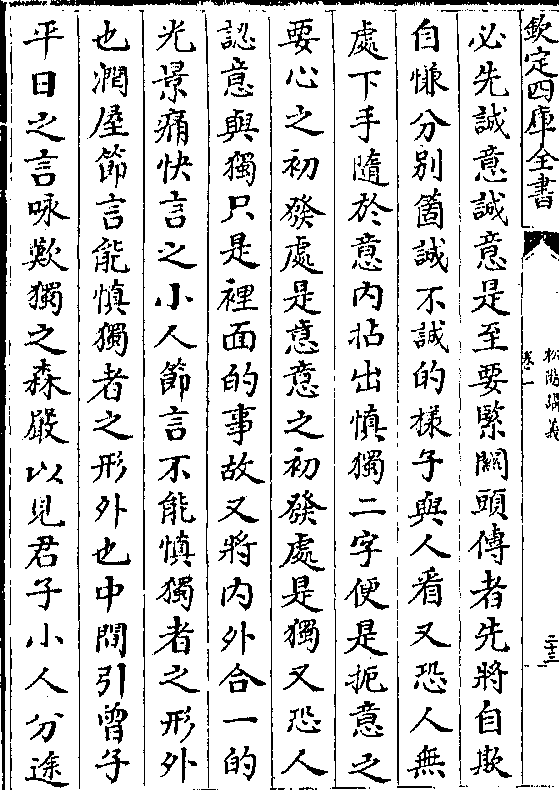 欽定四庫全書
松陽講義
卷一
二十三
必先誠意誠意是至要緊關頭傳者先將自欺
自慊分别箇誠不誠的様子與人看又恐人無
處下手隨於意内拈出慎獨二字便是扼意之
要心之初發處是意意之初發處是獨又恐人
認意與獨只是裡面的事故又將内外合一的
光景痛快言之小人節言不能慎獨者之形外
也潤屋節言能慎獨者之形外也中間引曾子
平日之言咏歎獨之森嚴以見君子小人分途